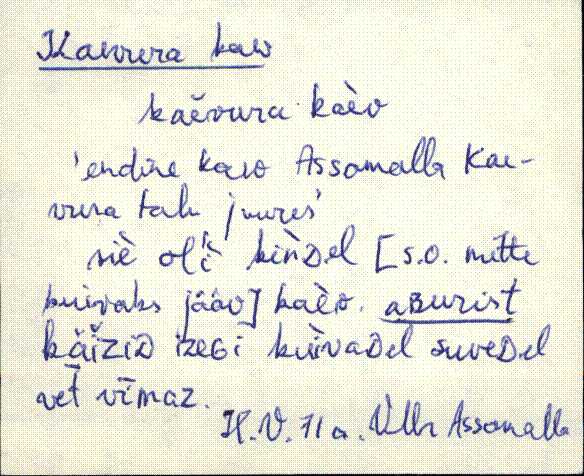 Kaevura kaev
kaĕvura kaèv
'endine kaev Assamalla Kae-
vura talu juures'
siè oľľi kiǹDel [s.o. mitte
kuivaks jääv] kaèv. aBurist
käìziD izegi kùivaDel suveDel
vet vīmaz.
H.V. 71 a. VMr Assamalla